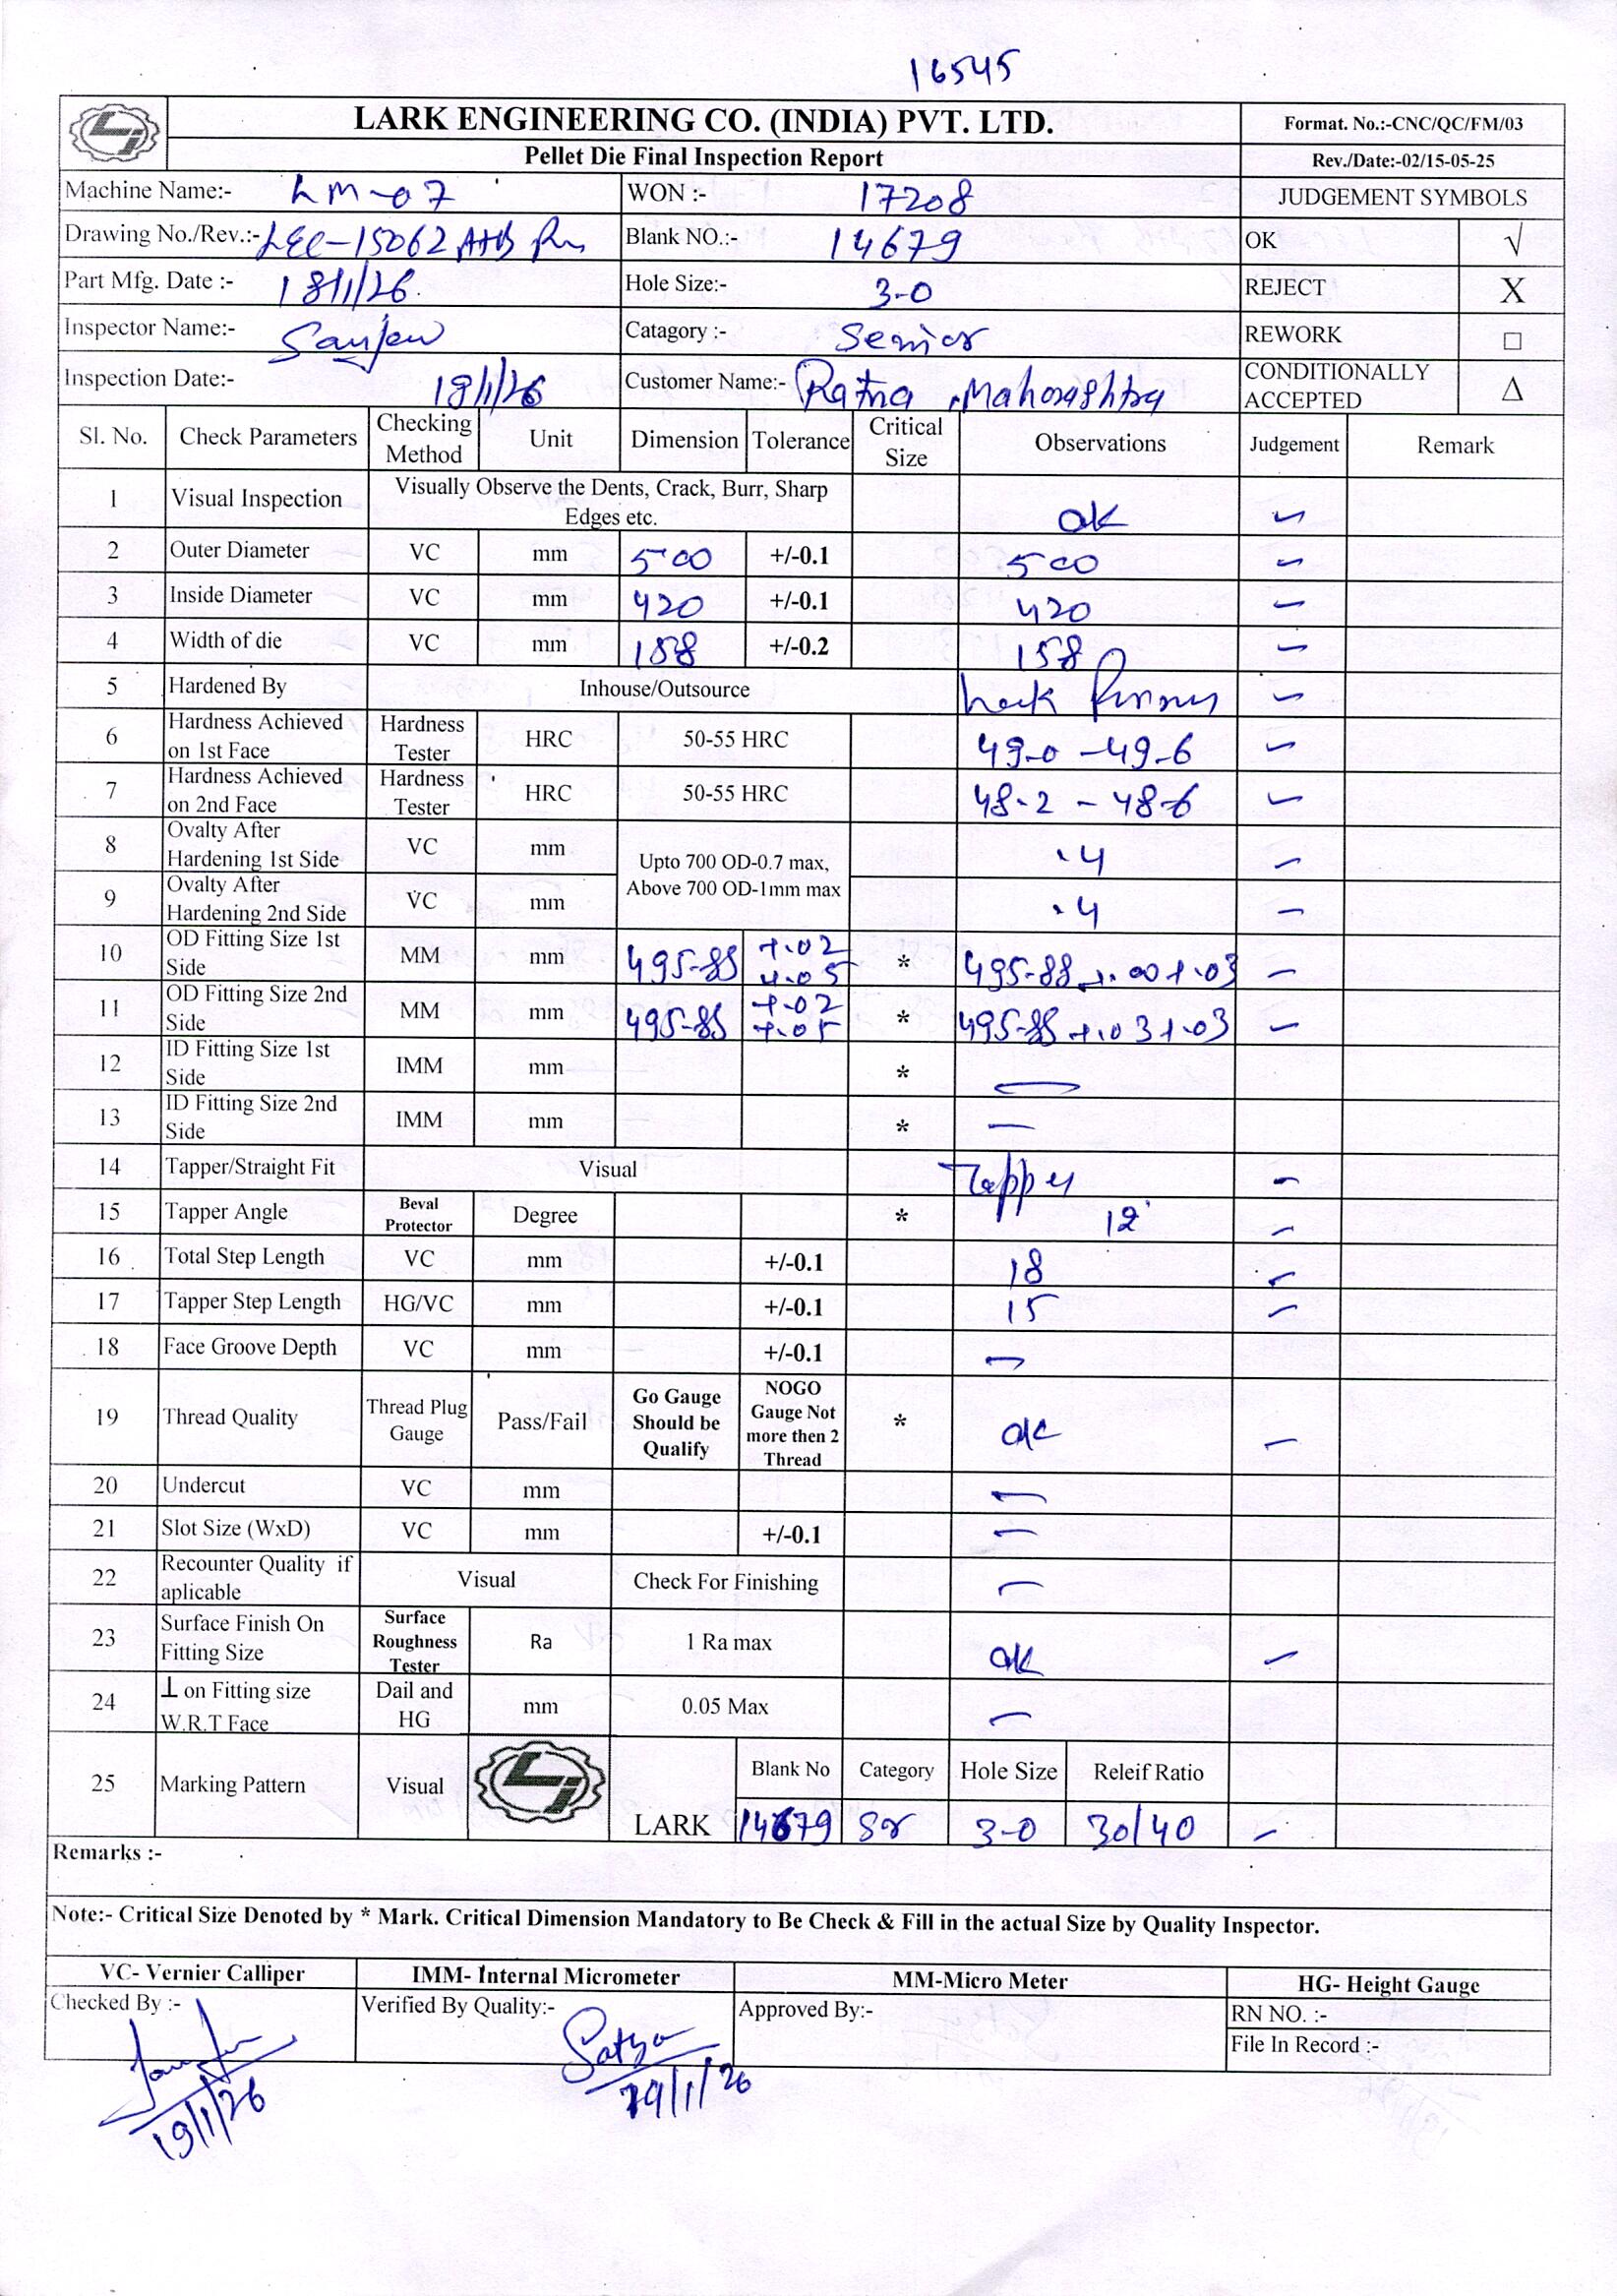 16545
LARK ENGINEERING CO. (INDIA) PVT. LTD.
Format. No.:-CNC/QC/FM/03
Pellet Die Final Inspection Report
Rev./Date:-02/15-05-25
Machine Name:- LM-07 WON :- 17208 JUDGEMENT SYMBOLS
Drawing No./Rev.:- LEC-15062 A+B Blank NO.:- 14679 OK √
Part Mfg. Date :- 18/1/26 Hole Size:- 3-0 REJECT X
Inspector Name:- Sanjeev Catagory :- Senior REWORK □
Inspection Date:- 19/1/26 Customer Name:- Ratna, Maharashtra CONDITIONALLY ACCEPTED Δ
Sl. No. Check Parameters Checking Method Unit Dimension Tolerance Critical Size Observations Judgement Remark
1 Visual Inspection Visually Observe the Dents, Crack, Burr, Sharp Edges etc. ok
2 Outer Diameter VC mm 500 +/-0.1 500
3 Inside Diameter VC mm 420 +/-0.1 420
4 Width of die VC mm 158 +/-0.2 158
5 Hardened By Inhouse/Outsource
6 Hardness Achieved on 1st Face Hardness Tester HRC 50-55 HRC 49-0 - 49-6
7 Hardness Achieved on 2nd Face Hardness Tester HRC 50-55 HRC 48-2 - 48-6
8 Ovalty After Hardening 1st Side VC mm Upto 700 OD-0.7 max, Above 700 OD-1mm max .4
9 Ovalty After Hardening 2nd Side VC mm .4
10 OD Fitting Size 1st Side MM mm 495-85 +.02 +.05 * 495-88 +.00 +.03
11 OD Fitting Size 2nd Side MM mm 495-85 +.02 +.05 * 495-85 +.03 +.03
12 ID Fitting Size 1st Side IMM mm * —
13 ID Fitting Size 2nd Side IMM mm * —
14 Tapper/Straight Fit Visual Tapper
15 Tapper Angle Beval Protector Degree * 12°
16 Total Step Length VC mm +/-0.1 18
17 Tapper Step Length HG/VC mm +/-0.1 15
18 Face Groove Depth VC mm +/-0.1 —
19 Thread Quality Thread Plug Gauge Pass/Fail Go Gauge Should be Qualify NOGO Gauge Not more then 2 Thread * ok
20 Undercut VC mm —
21 Slot Size (WxD) VC mm +/-0.1 —
22 Recounter Quality if aplicable Visual Check For Finishing —
23 Surface Finish On Fitting Size Surface Roughness Tester Ra 1 Ra max ok
24 ⊥ on Fitting size W.R.T Face Dail and HG mm 0.05 Max —
25 Marking Pattern Visual LARK Blank No Category Hole Size Releif Ratio
14679 Sr 3-0 30/40
Remarks :-
Note:- Critical Size Denoted by * Mark. Critical Dimension Mandatory to Be Check & Fill in the actual Size by Quality Inspector.
VC- Vernier Calliper IMM- Internal Micrometer MM-Micro Meter HG- Height Gauge
Checked By :- Verified By Quality:- Approved By:- RN NO. :-
File In Record :-
Satya
19/1/26 19/1/26